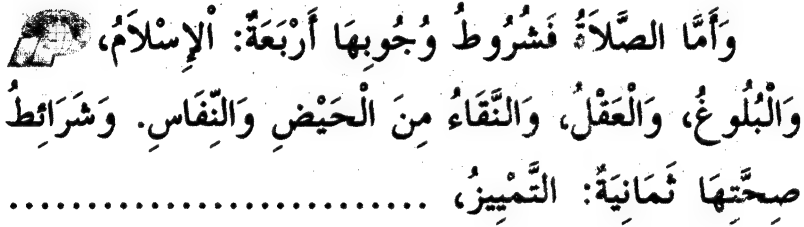 وَأَمَّا الصَّلَاةُ فَشُرُوطُ وُجُوبِهَا أَرْبَعَةٌ: اْلإِسْلاَمُ،
وَالْبُلُوغُ، وَالْعَقْلُ، وَالنَّقَاءُ مِنَ الْحَيْضِ وَالنِّفَاسِ. وَشَرَائِطُ
صِحَّتِهَا ثَمَانِيَةٌ: التَّمْيِيزُ، ............................